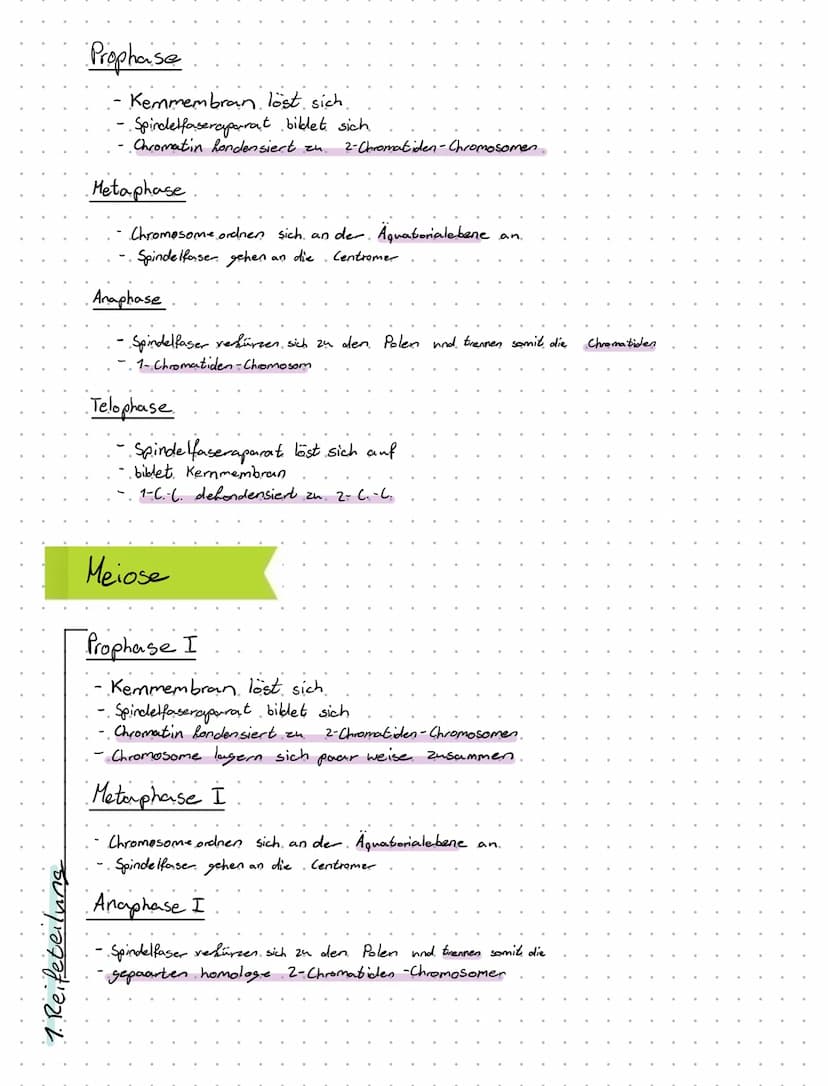 Prophase
- Kernmembran löst sich
- Spindelfaseraparat bildet sich
- Chromatin kondensiert zu 2-Chromatiden-Chromosomen
Metaphase
- Chromosome ordnen sich an der Äquatorialebene an
- Spindelfaser gehen an die Centromer
Anaphase
- Spindelfaser verkürzen sich zu den Polen und trennen somit die Chromatiden
- 1-Chromatiden-Chromosom
Telophase
- Spindelfaseraparat löst sich auf
- bildet Kernmembran
- 1-C.-C. dekondensiert zu 2-C.-C.
Meiose
Prophase I
- Kernmembran löst sich
- Spindelfaseraparat bildet sich
- Chromatin kondensiert zu 2-Chromatiden-Chromosomen
- Chromosome lagern sich paar weise zusammen
Metaphase I
- Chromosome ordnen sich an der Äquatorialebene an.
- Spindelfaser gehen an die Centromer
Anaphase I
- Spindelfaser verkürzen sich zu den Polen und trennen somit die
- gepaarten homologe 2-Chromatiden-Chromosomer
1. Reifeteilung